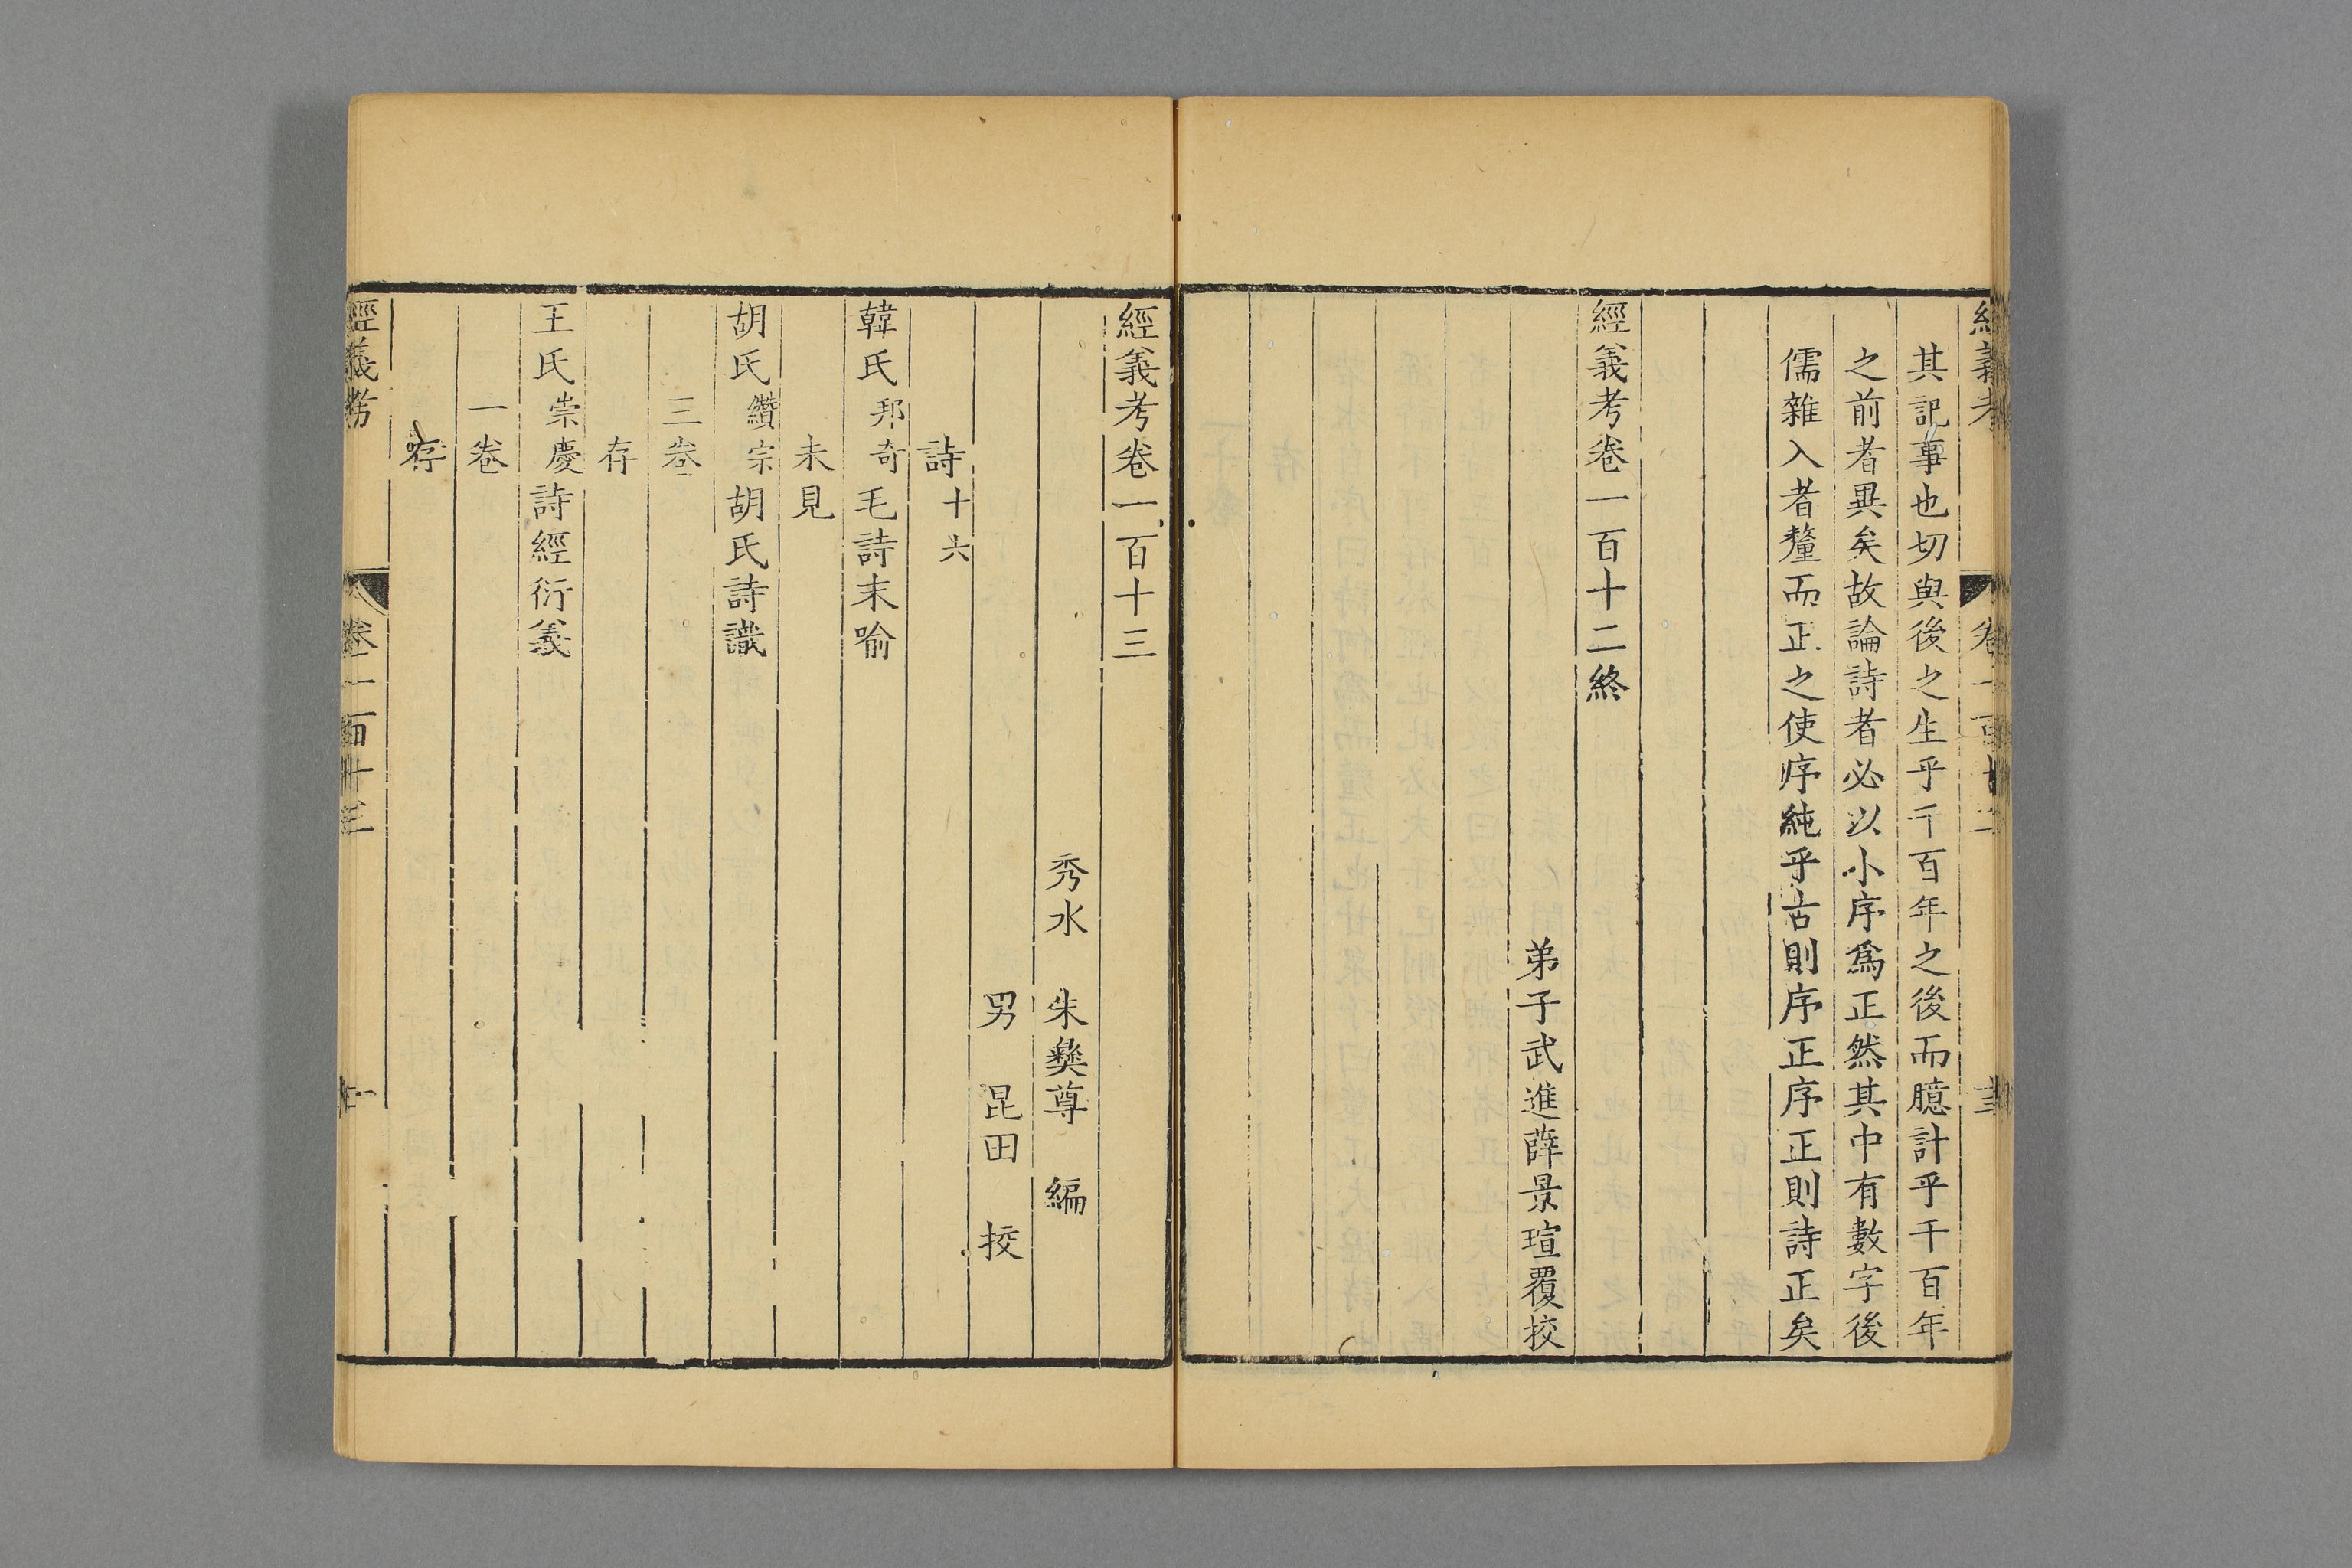 其記事也切與後之生乎千百年之後而臆計乎千百年
之前者異矣故論詩者必以小序爲正然其中有數字後
儒雜入者釐而正之使序純乎古則序正序正則詩正矣
經義考卷一百十二終
弟子武進薛景瑄覆挍
經義考卷一百十三
秀水 朱彝尊 編
男 昆田 挍
詩十六
韓氏邦奇毛詩末喻
未見
胡氏纘宗胡氏詩識
三卷
存
王氏崇慶詩經衍義
一卷
存
經義考 卷一百十三 一